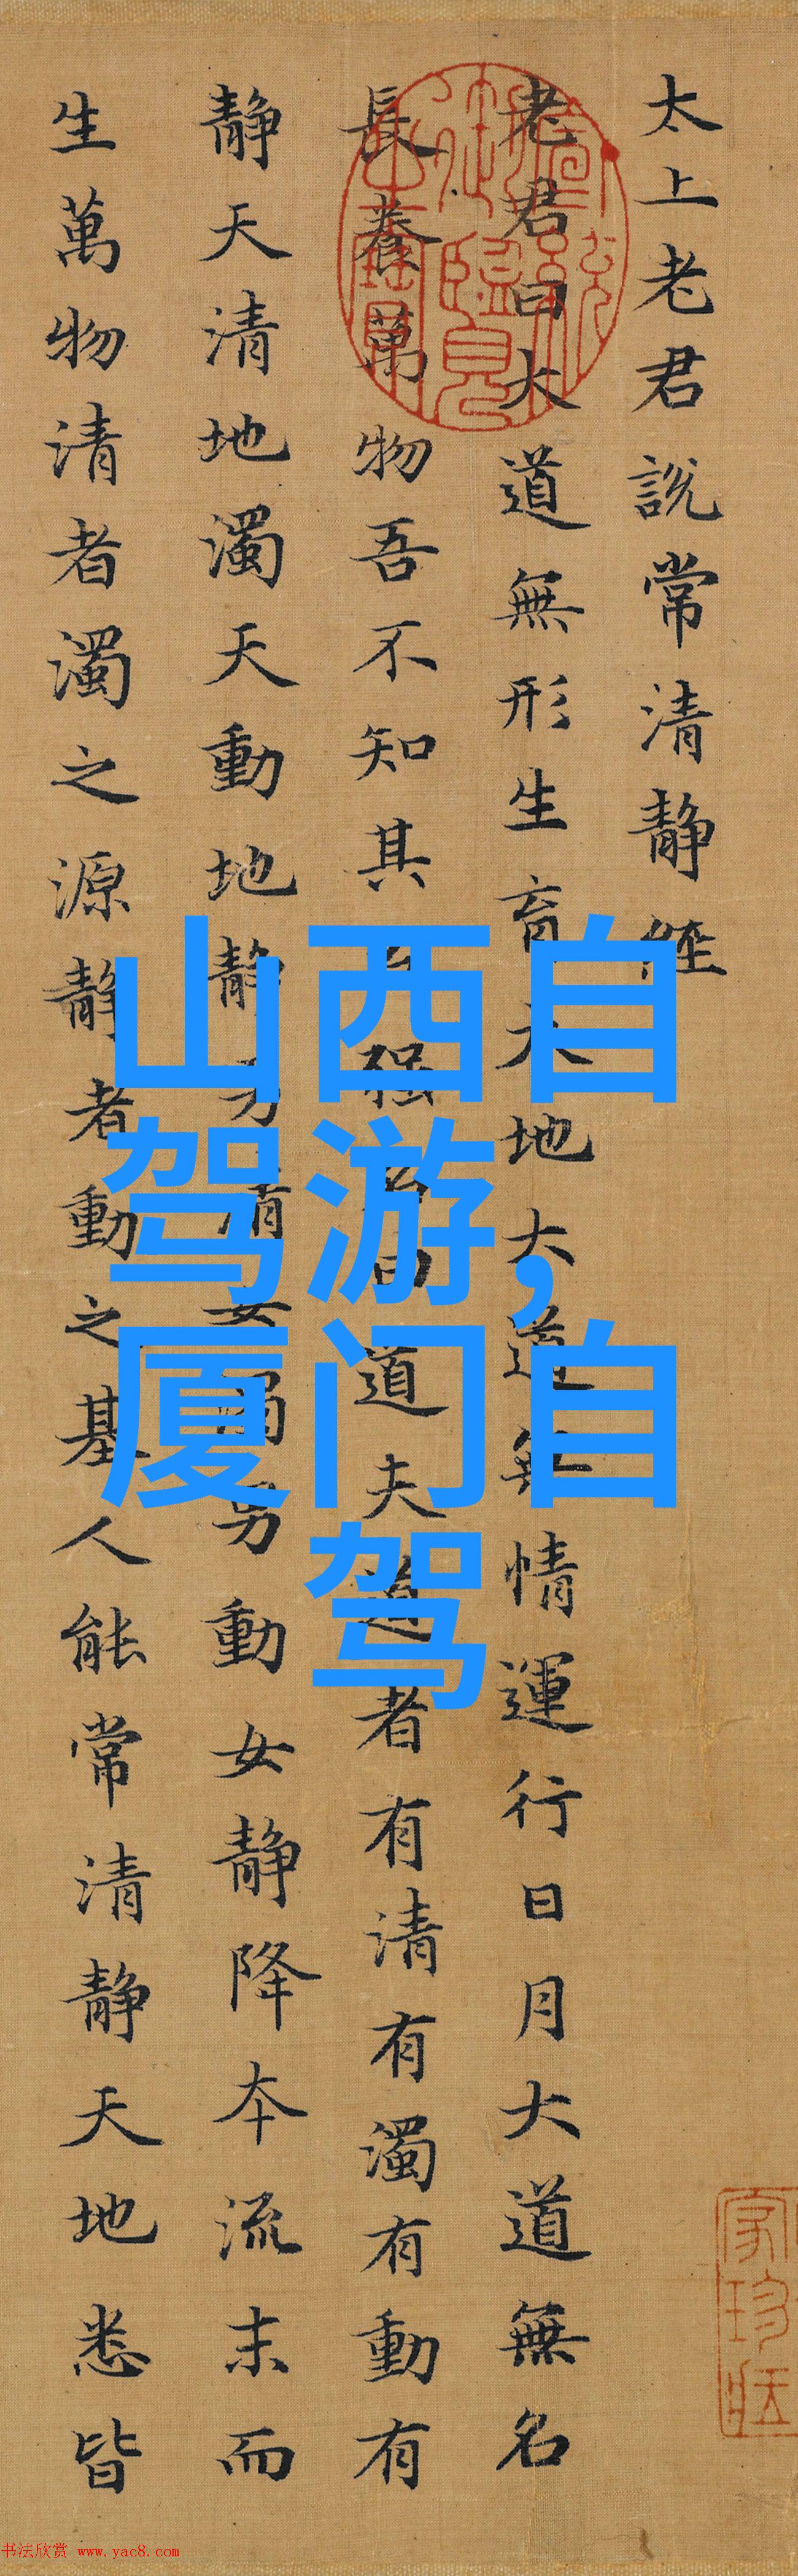 太上老君説常清静經
老君曰大道無形生育天地大道無情運行日月大道無名
長養萬物吾不知其名强名曰道夫道者有清有濁有動有
静天清地濁天動地静男清女濁男動女静降本流末而
生萬物清者濁之源静者動之基人能常清静天地悉皆
山西自
驾游,
厦门自
驾
书法欣赏 www.yac8.com